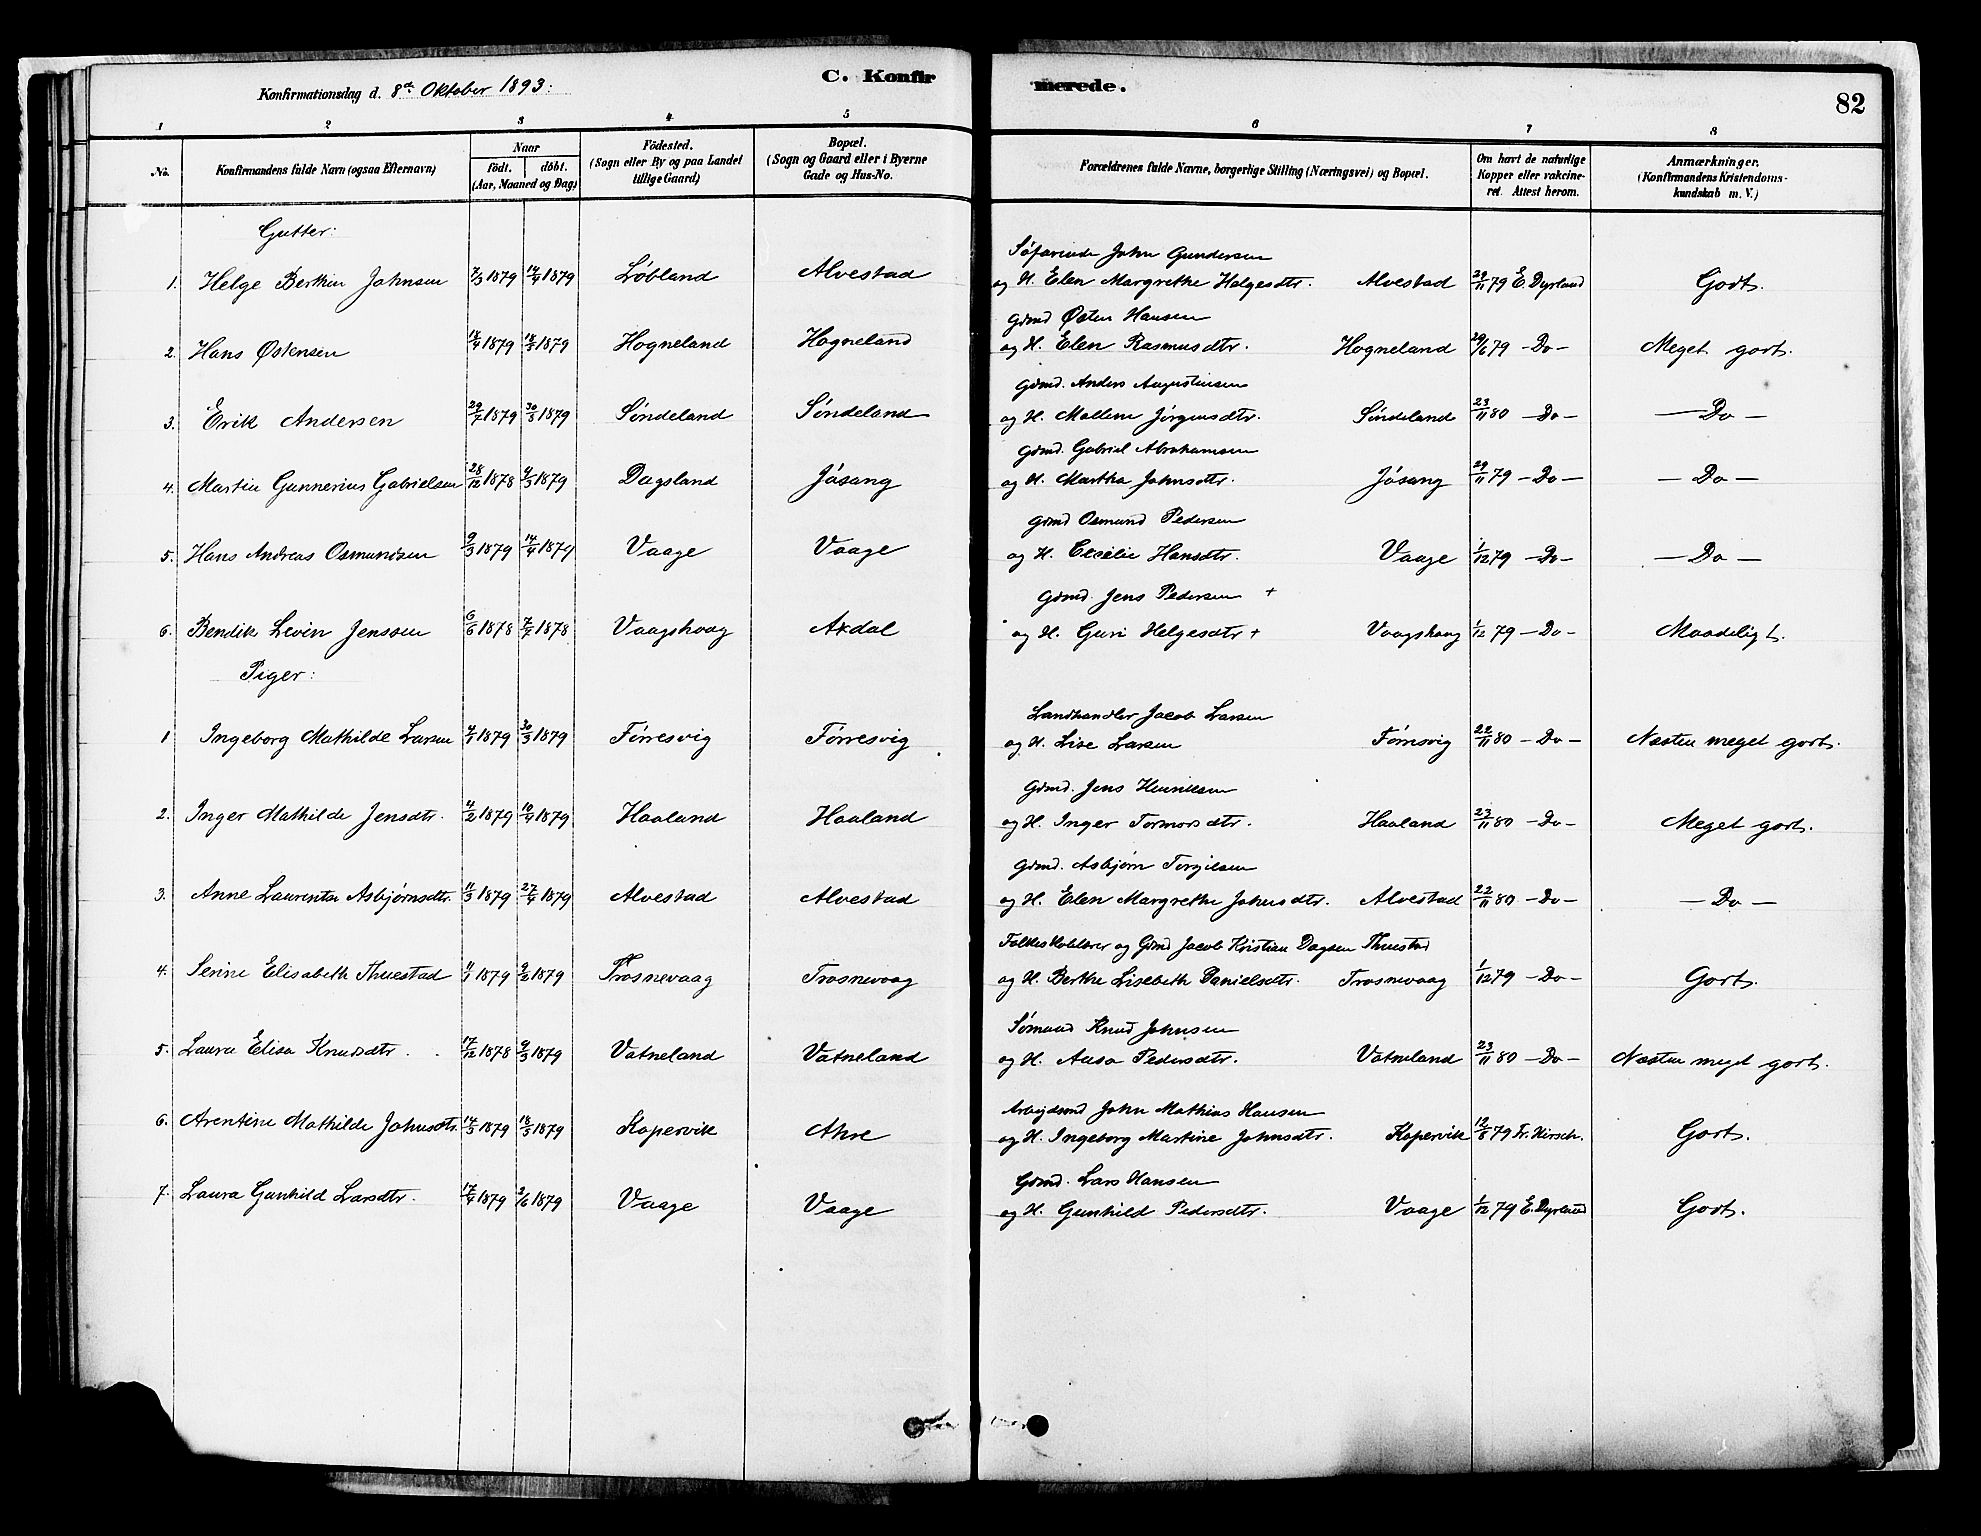 C. Konfirmerede.
82
Konfirmationsdag d. 8de Oktober 1893:
1 2 3 4 5 6 7 8
No. Konfirmandens fulde Navn (ogsaa Efternavn) Naar födt. döbt. (Aar, Maaned og Dag) Födested. (Sogn eller By og paa Landet tillige Gaard.) Bopæl. (Sogn og Gaard eller i Byerne Gade og Hus-No. Forældrenes fulde Navne, borgerlige Stilling (Næringsvei) og Bopæl. Om havt de naturlige Kopper eller vakcineret. Attest herom. Anmærkninger. (Konfirmandens Kristendomskundskab m. V.)
Gutter:
Söfarende John Gundersen
1. Helge Berthin Johnsen 7/3 1879 14/4 1879 Löbland Alvestad og H. Elen Margrethe Helgesdtr. Alvestad 29/11 79 E. Dyrland Godt.
Gdmd Østen Hansen
2. Hans Østensen 14/4 1879 18/5 1879 Hogneland Hogneland og H. Elen Rasmusdtr. Hogneland 29/6 79 - Do - Meget godt.
Gdmd. Anders Augustinsen
3. Erik Andersen 29/7 1879 30/8 1879 Söndeland Söndeland og H. Mallene Jörgensdtr. Söndeland 23/11 80 - Do - - Do -
Gdmd. Gabriel Abrahamsen
4. Martin Gunnerius Gabrielsen 28/12 1878 9/3 1879 Dagsland Jösang og H. Martha Johnsdtr. Jösang 29/11 79 - Do - - Do -
Gdmd Osmund Pedersen
5. Hans Andreas Osmundsen 9/3 1879 14/4 1879 Vaage Vaage og H. Cecelie Hansdtr. Vaage 1/12 79 - Do - - Do -
Gdmd. Jens Pedersen +
6. Bendik Levin Jenssen 6/6 1878 7/7 1878 Vaagshaag Axdal og H. Guri Helgesdtr + Vaagshaag 1/12 79 - Do - Maadeligt.
Piger:
Landhandler Jacob Larsen
1 Ingeborg Mathilde Larsen 4/1 1879 30/3 1879 Förresvig Förresvig og H. Lise Larsen Förresvig 22/11 80 - Do - Næsten meget godt.
Gdmd. Jens Henriksen
2. Inger Mathilde Jensdtr. 4/2 1879 10/4 1879 Haaland Haaland og H. Inger Tormodsdtr. Haaland 23/11 80 - Do - Meget godt.
Gdmd. Asbjörn Torgilsen
3. Anne Laurentse Asbjörnsdtr. 11/3 1879 27/4 1879 Alvestad Alvestad og H. Elen Margrethe Johnsdtr. Alvestad 22/11 80 - Do - - Do -
Folkeskolelærer og Gdmd Jacob Kristian Dagsen Thuestad
4. Serine Elisabeth Thuestad 4/1 1879 9/2 1879 Trosnevaag Trosnevaag og H. Berthe Lisebeth Danielsdtr. Trosnevaag 1/12 79 - Do - Godt.
Sömand Knud Johnsen
5. Laura Elisa Knudsdtr. 17/12 1878 9/3 1879 Vatneland Vatneland og H. Aasa Pedersdtr. Vatneland 23/11 80 - Do - Næsten meget godt.
Arbeidsmd John Mathias Hansen
6. Arentine Mathilde Johnsdtr. 14/3 1879 18/5 1879 Kopervik Ahre og H. Ingeborg Martine Johnsdtr. Kopervik 12/8 79 Fr. Kirsch. Godt.
Gdmd. Lars Hansen
7. Laura Gunhild Larsdtr. 17/4 1879 2/6 1879 Vaage Vaage og H. Gunhild Pedersdtr. Vaage 1/12 79 E. Dyrland Godt.